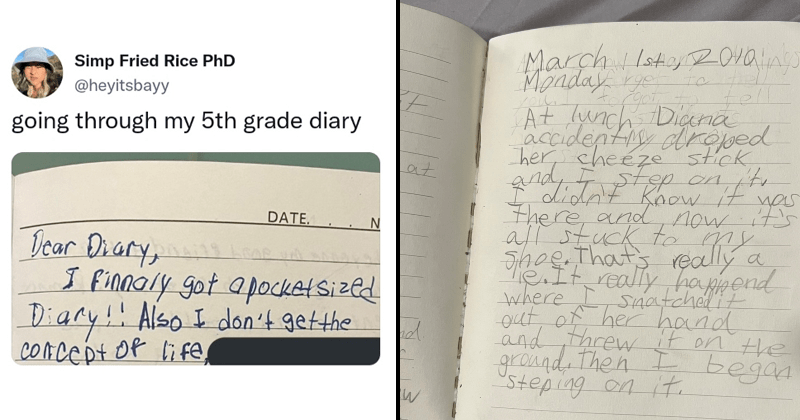 Simp Fried Rice PhD
@heyitsbayy
going through my 5th grade diary
DATE. . . N
Dear Diary,
I finnaly got a pocket sized
Diary!! Also I don't get the
concept of life,
March 1st, 2010
Monday
At lunch Diana
accidently droped
her cheeze stick
and I step on it.
I didn't know it was
there and now it's
all stuck to my
shoe. That's really a
lie. It really happend
where I snatched it
out of her hand
and threw it on the
ground. Then I began
steping on it.